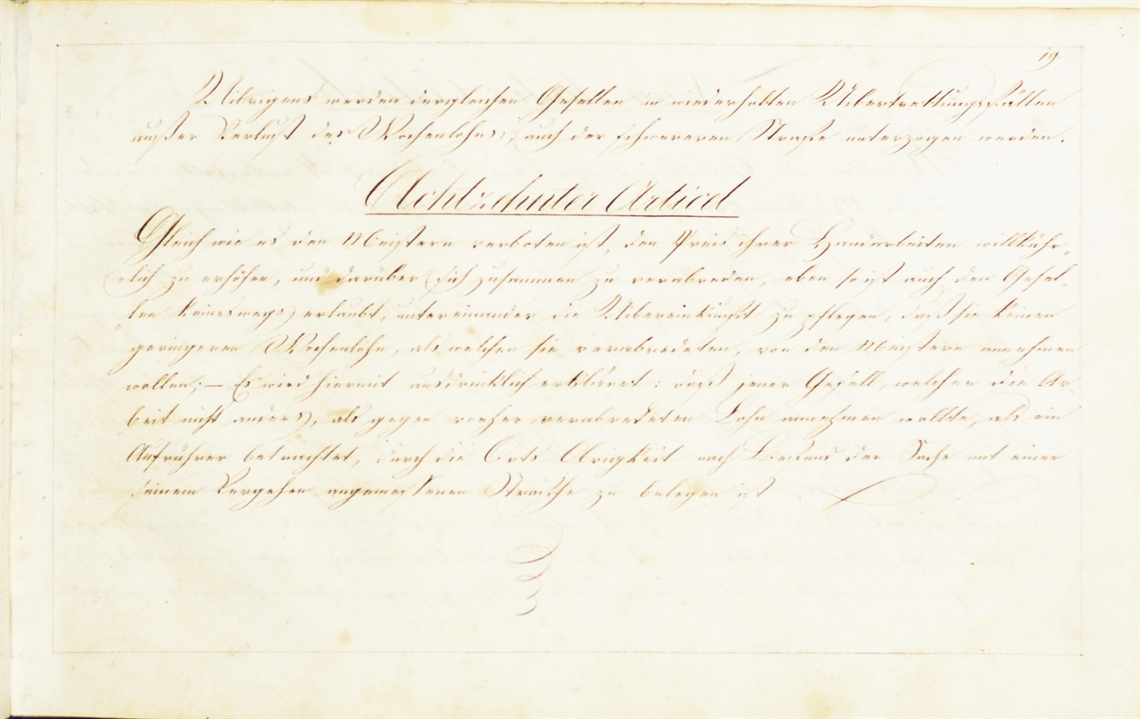 19.
Uibrigens werden dergleichen Gesellen in wiederholten Uibertrettungsfällen
außer Verlust des Wochenlohns, auch der schwereren Straffe unterzogen werden.
Achtzehnter Articel
Gleich wie es den Meistern verboten ist, den Preis ihrer Handarbeiten willkühr=
lich zu erhöhen, und darüber sich zusammen zu verabreden, eben so ist auch den Gesel=
len keineswegs erlaubt, untereinander die Uibereinkunft zu pflegen, daß sie keinen
geringeren Wochenlohn, als welchen sie verabredeten, von den Meistern annehmen
wollen; — Es wird hiermit ausdrücklich erkläret: daß jener Gesell, welcher die Ar
beit nicht anders, als gegen vorher verabredeten Lohn annehmen wollte, als ein
Aufrührer betrachtet, durch die Orts Obrigkeit nach Befund der Sache mit einer
seinem Vergehen angemessenen Straffe zu belegen ist